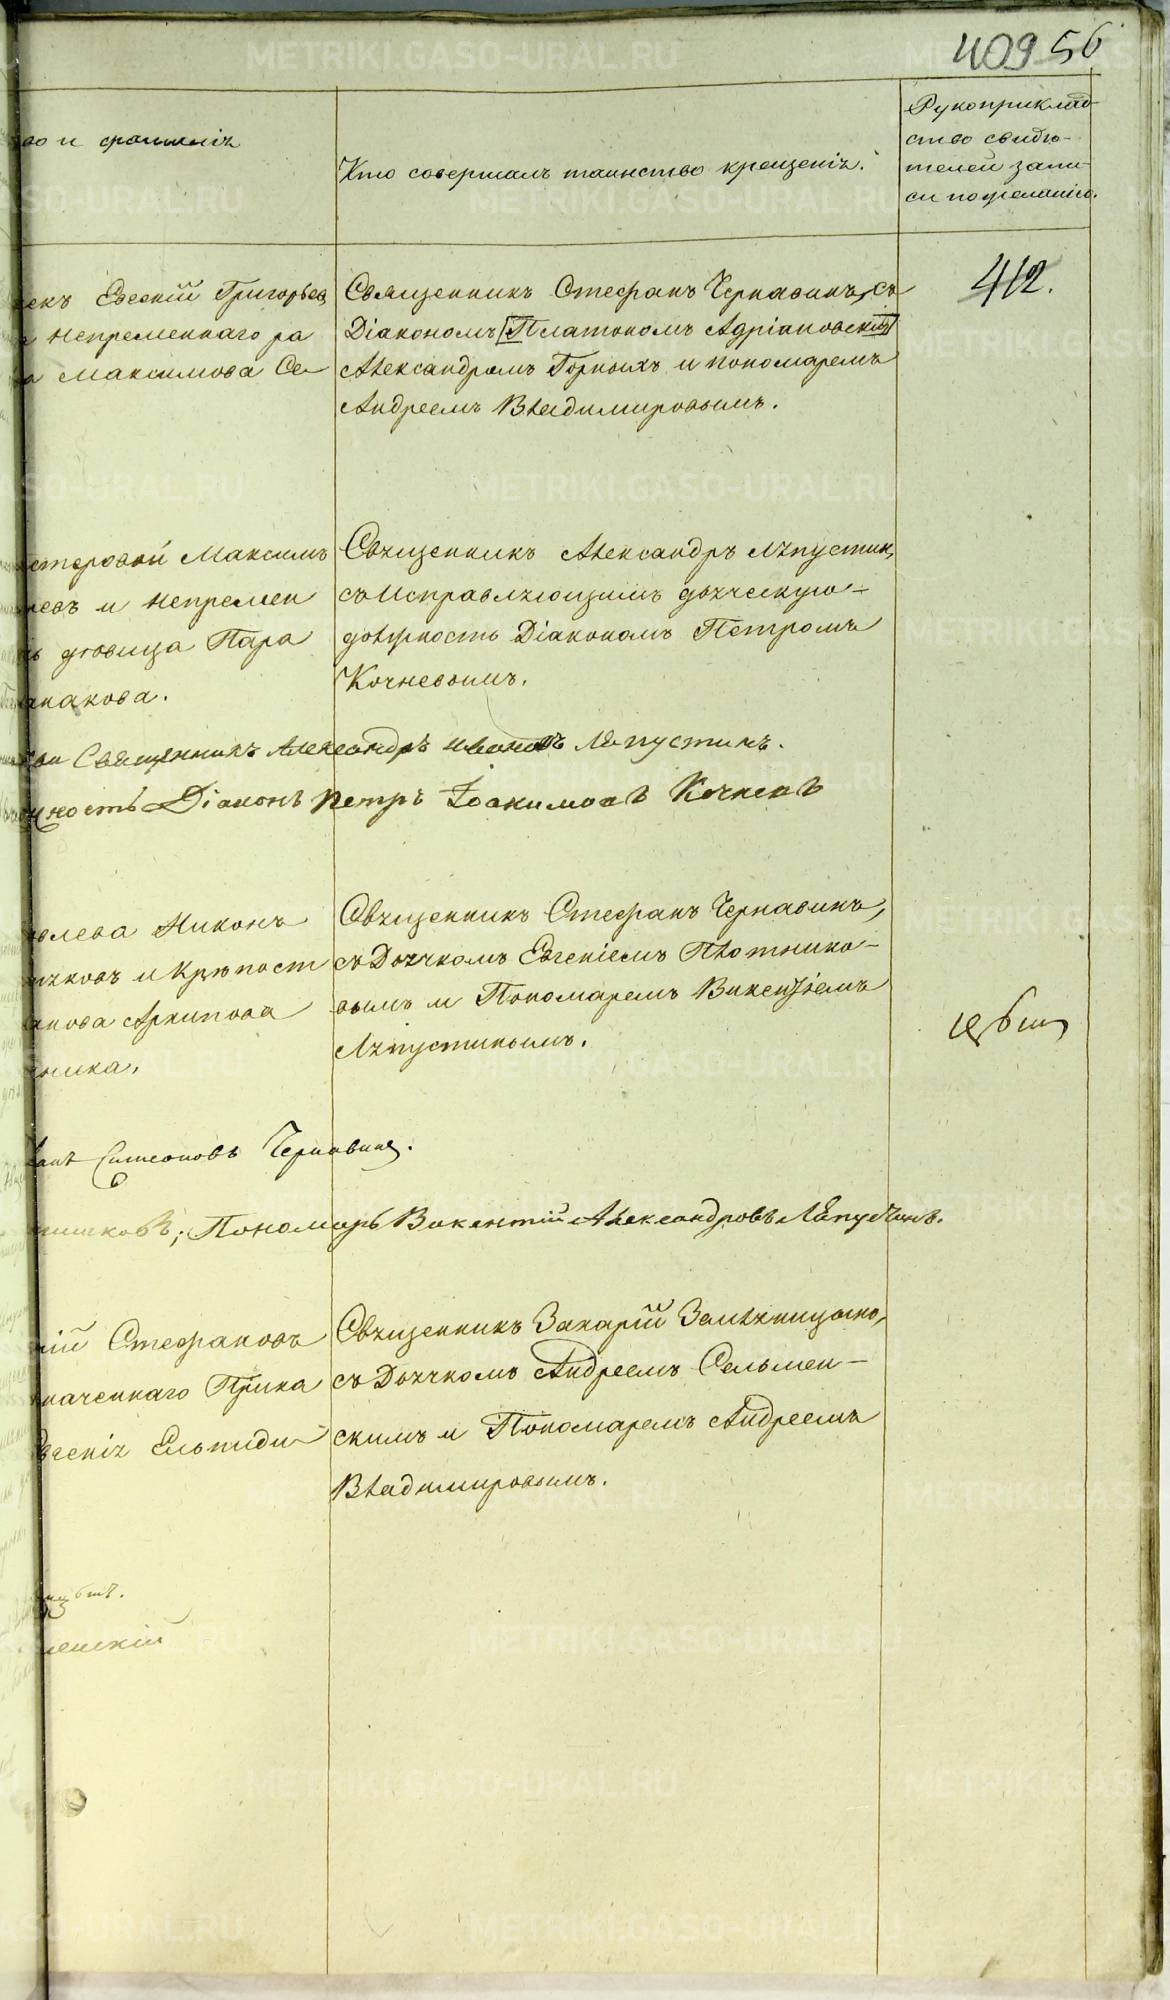 409 56
во и фамилія
Кто совершалъ таинство крещенія.
Рукоприклад-
ство свидѣ-
телей запи-
си по желанію.
екъ Евсевій Григорьев
непременнаго ра
а Максимова Се-
Священникъ Стефанъ Чернавинъ, съ
Діакономъ [Платономъ Адріановскимъ]
Александромъ Горныхъ и пономаремъ
Андреемъ Владимировымъ.
412.
стеровой Максимъ
евъ и непремен
ъ дѣвица Пара
накова.
Священникъ Александръ Ляпустин,
съ исправляющимъ дьяческую-
должность Діакономъ Петромъ
Кочневымъ.
Священникъ Александръ Ивановъ Ляпустинъ.
ность Діаконъ Петръ Іоакимовъ Кочневъ
влева Никонъ
чковъ и крѣпост
нова Архипова
ника.
Священникъ Стефанъ Чернавинъ,
съ Дьячкомъ Евгеніемъ Плотнико-
вымъ и Пономаремъ Викентіемъ
Ляпустинымъ.
анъ Симеоновъ Чернавинъ.
никовъ; Пономарь Викентій Александровъ Ляпустинъ.
ій Стефановъ
наченнаго Прика
генія Ельпиди-
Священникъ Захарій Земляницынъ,
съ Дьячкомъ Андреемъ Сельмен-
скимъ и Пономаремъ Андреемъ
Владимировымъ.
менскій
METRIKI.GASO-URAL.RU